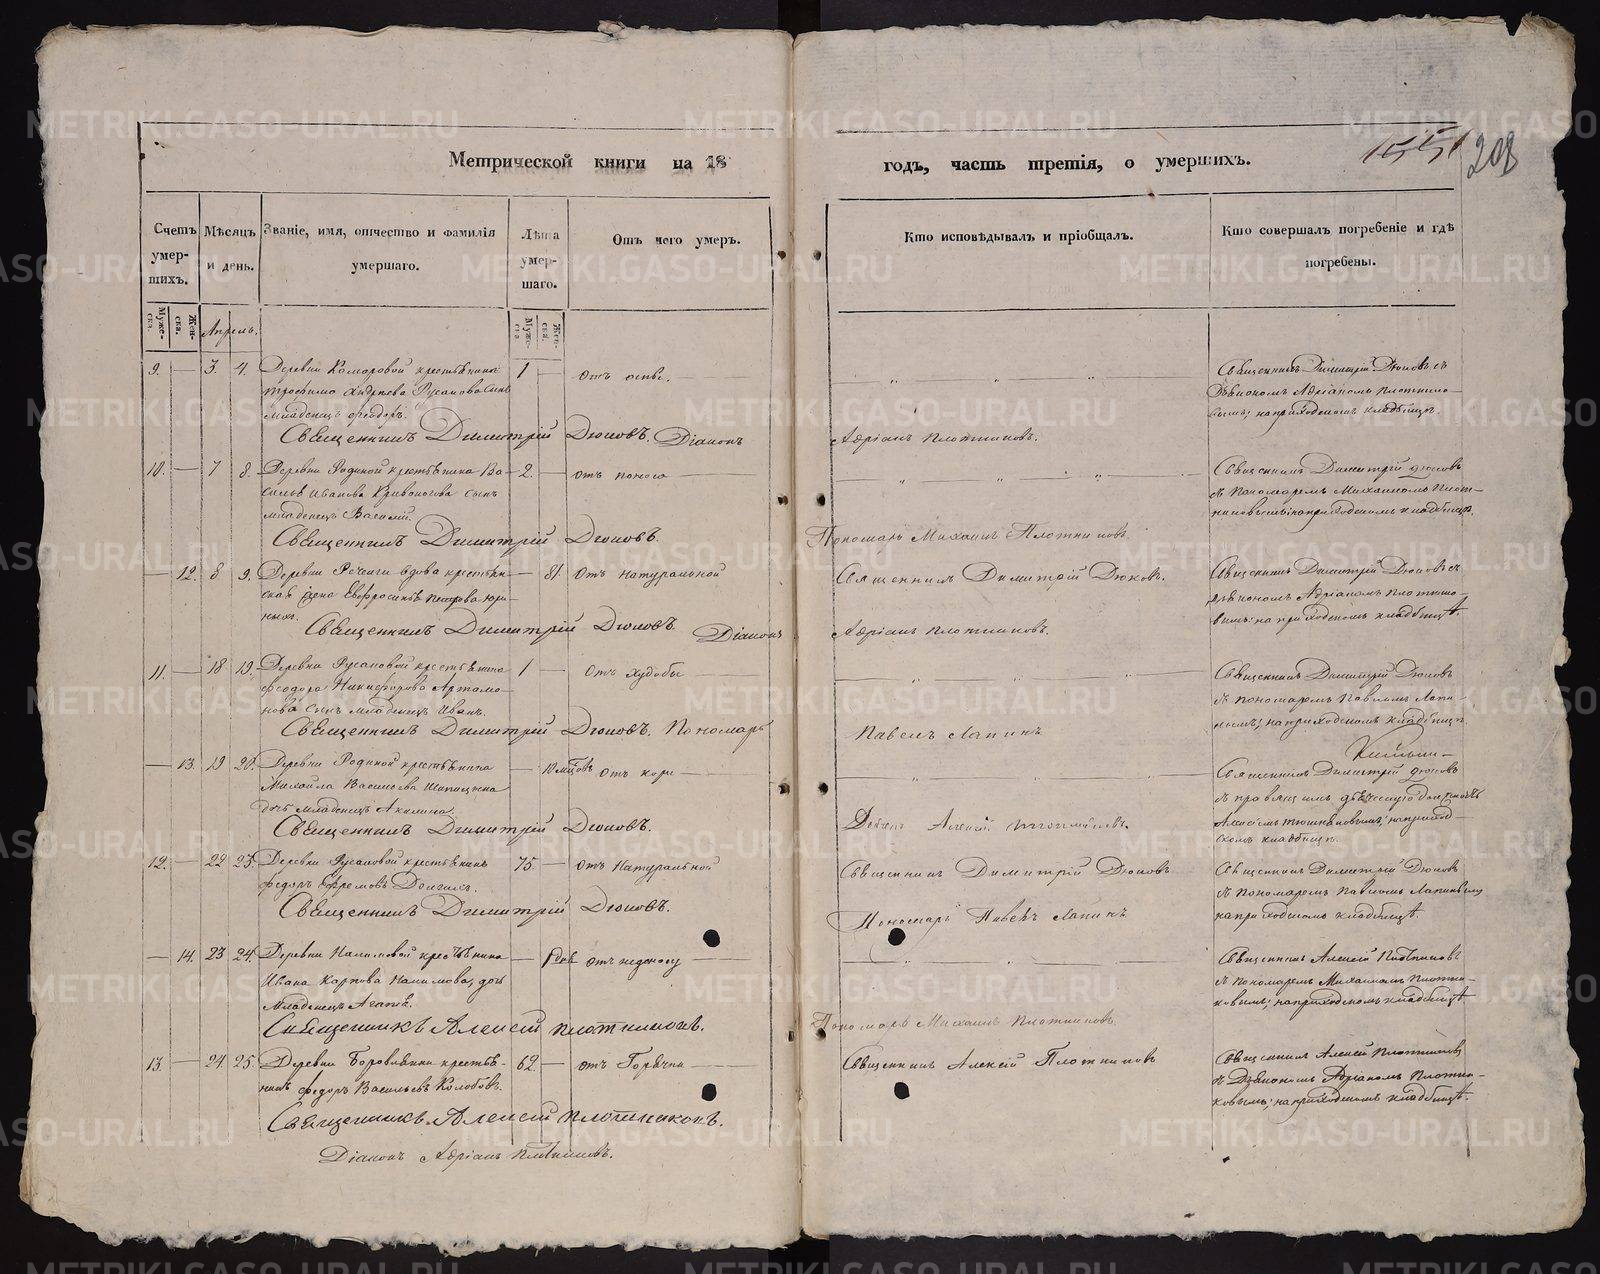 Метрической книги на 18
годъ, часть третія, о умершихъ.
1551 208
Счетъ умер-
шихъ.
Мѣсяцъ
и день.
Званіе, имя, отчество и фамилія
умершаго.
Лѣта
умер-
шаго.
Отъ чего умеръ.
Кто исповѣдывалъ и пріобщалъ.
Кто совершалъ погребеніе и гдѣ
погребены.
Муже-
ска.
Жен-
ска.
Апрель.
Муже-
ска.
Жен-
ска.
9. — 3. 4. Деревни Комаровой крестьянина 1 — отъ оспы.
Трофима Андреева Русанова сынъ
младенецъ Феодоръ.
Священникъ Димитрій Дюковъ съ
Діакономъ Адріаномъ Плотнико-
вымъ; на приходскомъ кладбищѣ.
Священникъ Димитрій Дюковъ. Діаконъ
Адріанъ Плотниковъ.
10. — 7 8. Деревни Родиной крестьянина Ва- 2. — отъ поноса
силья Иванова Кривоногова сынъ
младенецъ Василій.
Священникъ Димитрій Дюковъ
съ Пономаремъ Михаиломъ Плот-
никовымъ; на приходскомъ кладбищѣ.
Священникъ Димитрій Дюковъ.
Пономарь Михаилъ Плотниковъ.
— 12. 8 9. Деревни вдова крестьян- — 81. отъ натуральной
ская жена Евфросинья Петрова
Священникъ Димитрій Дюковъ.
Священникъ Димитрій Дюковъ съ
Діакономъ Адріаномъ Плотнико-
вымъ: на приходскомъ кладбищѣ.
Священникъ Димитрій Дюковъ. Діаконъ
Адріанъ Плотниковъ.
11. — 18 19. Деревни Русановой крестьянина 1 — отъ худобы
Феодора Никифорова Артамо-
нова сынъ младенецъ Иванъ.
Священникъ Димитрій Дюковъ
съ пономаремъ Павломъ Лапи-
нымъ; на приходскомъ кладбищѣ
Священникъ Димитрій Дюковъ. Пономарь
Павелъ Лапинъ
— 13. 19 20. Деревни Родиной крестьянина — 10 мѣсяцовъ отъ кори
Михаила Васильева Шипицына
дочь младенецъ Акилина.
Священникъ Димитрій Дюковъ
Священникъ Димитрій Дюковъ.
Алексѣй
12. — 22 23. Деревни Русановой крестьянинъ 75. — отъ натуральной
Федоръ Ефремовъ Долгихъ.
Священникъ Димитрій Дюковъ
Священникъ Димитрій Дюковъ
съ Пономаремъ Павломъ Лапинымъ
на приходскомъ кладбищѣ.
Священникъ Димитрій Дюковъ.
Пономарь Павелъ Лапинъ
— 14. 23 24. Деревни Налимовой крестьянина — отъ недоносу
Ивана Карпова Налимова, дочь
младенецъ Агапія.
Священникъ Алексій Плотниковъ
съ Пономаремъ Михаиломъ Плотни-
ковымъ; на приходскомъ кладбищѣ
Священникъ Алексій Плотниковъ.
Пономарь Михаилъ Плотниковъ.
13. — 24. 25. Деревни Боровлянки крестья- 62. — отъ Горячки
нинъ Федоръ Васильевъ Колобовъ.
Священникъ Алексій Плотниковъ
Священникъ Алексій Плотниковъ
съ Діакономъ Адріаномъ Плотни-
ковымъ; на приходскомъ кладбищѣ.
Священникъ Алексій Плотниковъ.
Діаконъ Адріанъ Плотниковъ.
METRIKI.GASO-URAL.RU